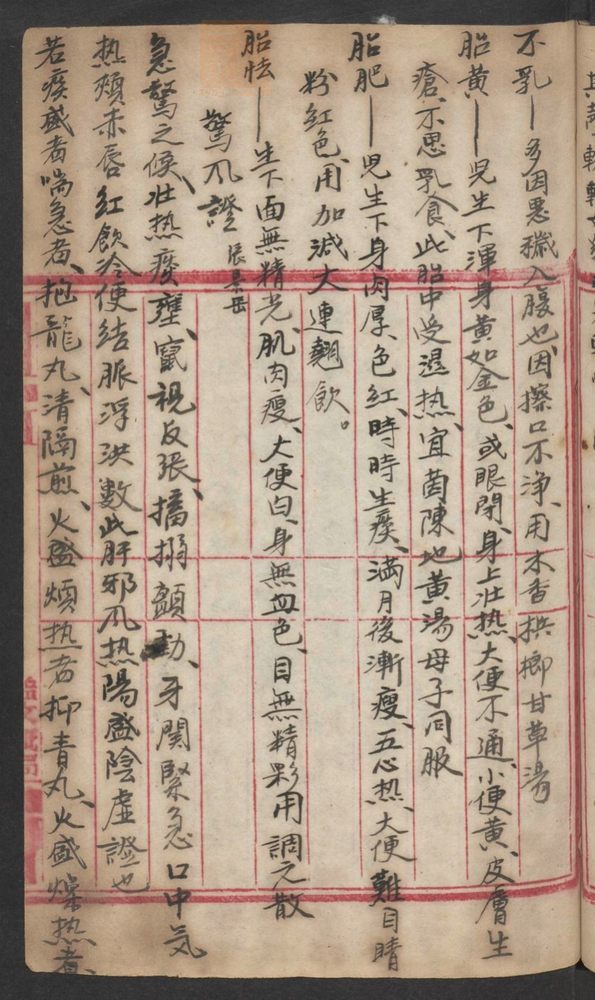 不乳—多因惡穢入腹也、因擦口不淨、用木香梹榔甘草湯
胎黃——児生下渾身黃如金色、或眼閉、身上壯热、大便不通、小便黃、皮膚生
瘡、不思乳食、此胎中受湿热、宜茵陳地黃湯母子同服
胎肥——児生下身肉厚、色红、時時生痰、滿月後漸瘦、五心热、大便難目睛
粉红色、用加减大連翹飲。
胎怯——生下面無精光、肌肉瘦、大便白、身無血色、目無精彩用調元散
驚风證 張景岳
急驚之候、壯热痰壅、竄視反張、搐搦顫動、牙関緊急口中気
热頰赤唇红飲冷便结脈浮洪數此肝邪风热陽盛陰虛證也
若痰盛者喘急者、抱龍丸、清膈煎、火盛煩热者抑青丸、火盛燥热者、